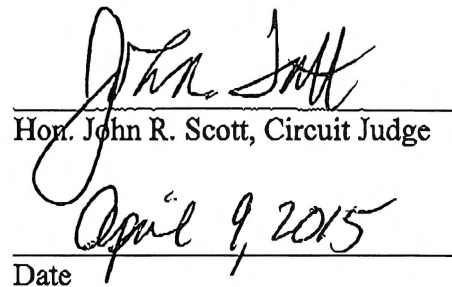 John. Scott
Hon. John R. Scott, Circuit Judge
April 9, 2015
Date